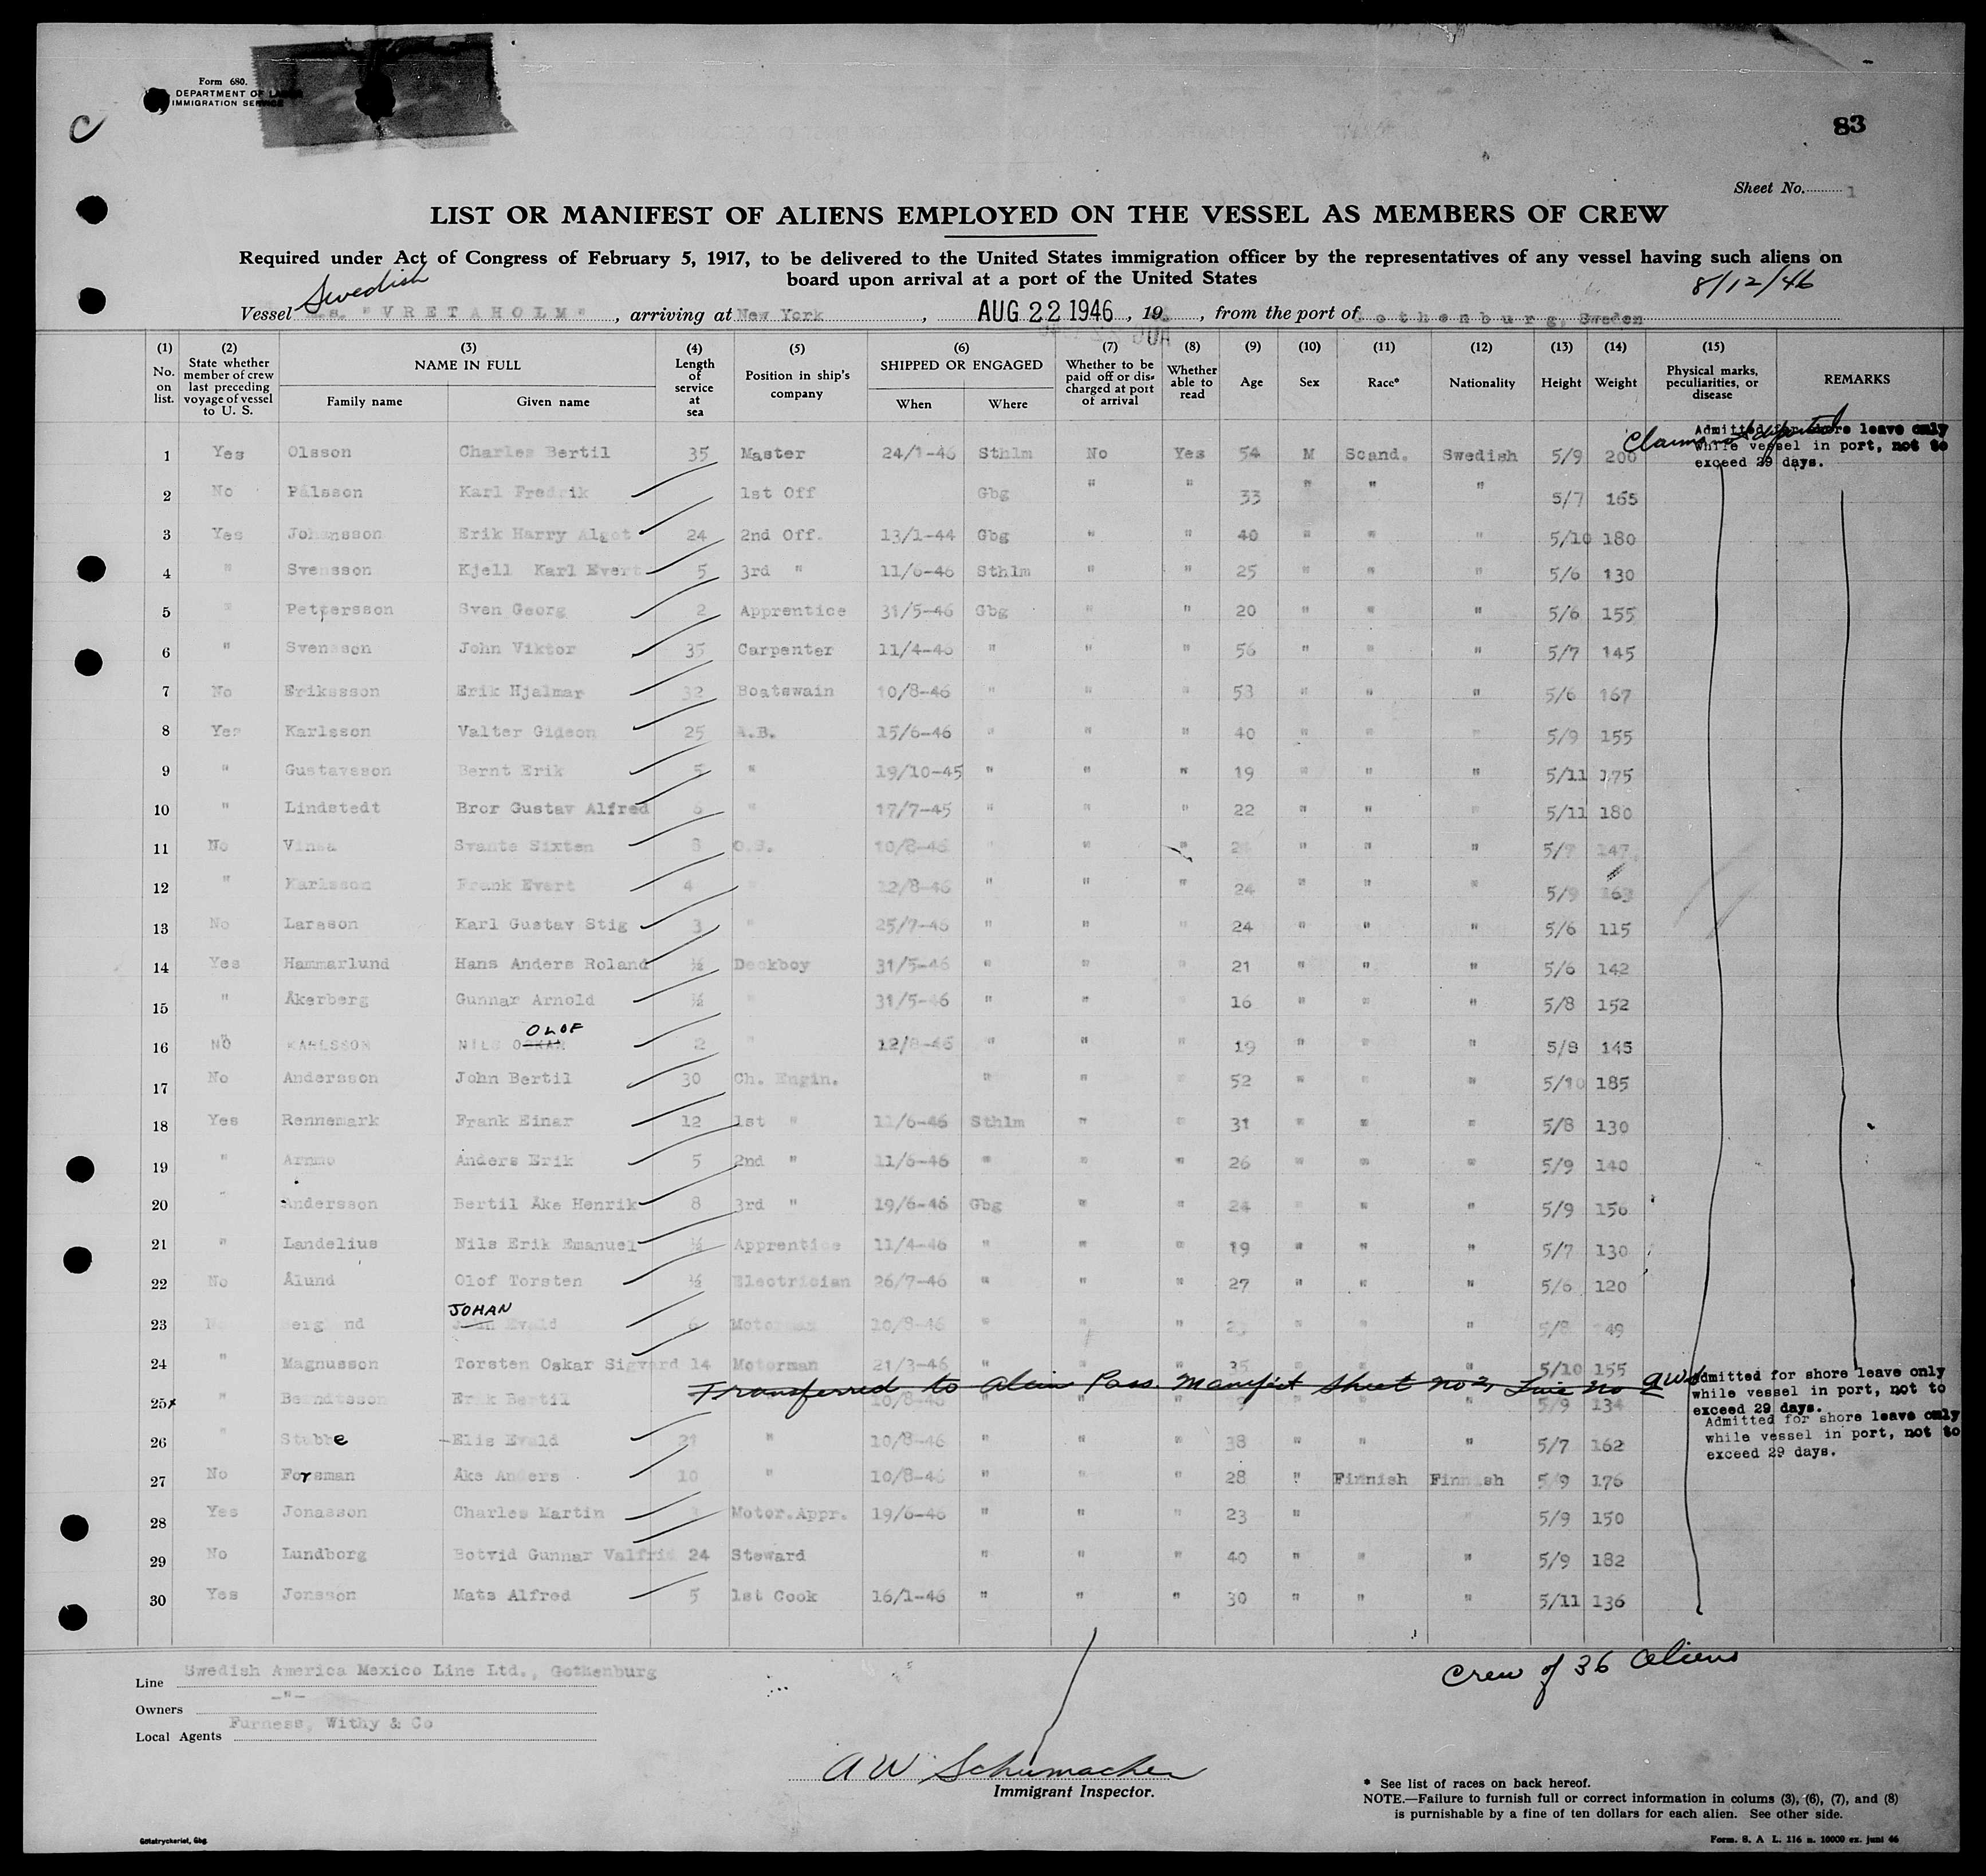 Form 680.
DEPARTMENT OF LABOR
IMMIGRATION SERVICE
C
83
Sheet No. 1
LIST OR MANIFEST OF ALIENS EMPLOYED ON THE VESSEL AS MEMBERS OF CREW
Required under Act of Congress of February 5, 1917, to be delivered to the United States immigration officer by the representatives of any vessel having such aliens on
board upon arrival at a port of the United States
Swedish 8/12/46
Vessel "VRETAHOLM", arriving at New York, AUG 22 1946, 19, from the port of Gothenburg, Sweden
(1) No. on list.
(2) State whether member of crew last preceding voyage of vessel to U. S.
(3) NAME IN FULL Family name Given name
(4) Length of service at sea
(5) Position in ship's company
(6) SHIPPED OR ENGAGED When Where
(7) Whether to be paid off or discharged at port of arrival
(8) Whether able to read
(9) Age
(10) Sex
(11) Race*
(12) Nationality
(13) Height
(14) Weight
(15) Physical marks, peculiarities, or disease
REMARKS
Admitted for shore leave only
while vessel in port, not to
exceed 29 days.
1 Yes Olsson Charles Bertil 35 Master 24/1-46 Sthlm No Yes 54 M Scand. Swedish 5/9 200
2 No Pålsson Karl Fredrik 1st Off Gbg " " 33 " " " 5/7 165
3 Yes Johansson Erik Harry Algot 24 2nd Off. 13/1-44 Gbg " " 40 " " " 5/10 180
4 " Svensson Kjell Karl Evert 5 3rd " 11/6-46 Sthlm " " 25 " " " 5/6 130
5 " Pettersson Sven Georg 2 Apprentice 31/5-46 Gbg " " 20 " " " 5/6 155
6 " Svensson John Viktor 35 Carpenter 11/4-46 " " " 56 " " " 5/7 145
7 No Erikssson Erik Hjalmar 32 Boatswain 10/8-46 " " " 53 " " " 5/6 167
8 Yes Karlsson Valter Gideon 25 A.B. 15/6-46 " " " 40 " " " 5/9 155
9 " Gustavsson Bernt Erik 5 " 19/10-45 " " " 19 " " " 5/11 175
10 " Lindstedt Bror Gustav Alfred 6 " 17/7-45 " " " 22 " " " 5/11 180
11 No Svante Sixten 8 O.S. 10/8-46 " " " " " " 5/7 147
12 " Karlsson Frank Evert 4 " 12/8-46 " " " 24 " " " 5/9 163
13 No Larsson Karl Gustav Stig 3 " 25/7-46 " " " 24 " " " 5/6 115
14 Yes Hammarlund Hans Anders Roland ½ Deckboy 31/5-46 " " " 21 " " " 5/6 142
15 " Åkerberg Gunnar Arnold ½ " 31/5-46 " " " 16 " " " 5/8 152
OLOF
16 NO KARLSSON NILS OSKAR 2 " 12/8-46 " " " 19 " " " 5/8 145
17 No Andersson John Bertil 30 Ch. Engin. " " " 52 " " " 5/10 185
18 Yes Rennemark Frank Einar 12 1st " 11/6-46 Sthlm " " 31 " " " 5/8 130
19 " Arnmo Anders Erik 5 2nd " 11/6-46 " " " 26 " " " 5/9 140
20 " Andersson Bertil Åke Henrik 8 3rd " 19/6-46 Gbg " " 24 " " " 5/9 156
21 " Landelius Nils Erik Emanuel ½ Apprentice 11/4-46 " " " 19 " " " 5/7 130
22 No Ålund Olof Torsten ½ Electrician 26/7-46 " " " 27 " " " 5/6 120
JOHAN
23 No John Evald 6 Motorman 10/8-46 " " " " " " 5/8 149
24 " Magnusson Torsten Oskar Sigvard 14 Motorman 21/3-46 " " " 35 " " " 5/10 155
Transferred to Alien Pass. Manifest Sheet No 2, Line No 2 AWS
25x " Berndtsson Erik Bertil 10/8-46 " " " " " " 5/9 134
Admitted for shore leave only
while vessel in port, not to
exceed 29 days.
26 " Stubbe Elis Evald 21 " 10/8-46 " " " 38 " " " 5/7 162
Admitted for shore leave only
while vessel in port, not to
exceed 29 days.
27 No Forsman Åke Anders 10 " 10/8-46 " " " 28 " Finnish Finnish 5/9 176
28 Yes Jonasson Charles Martin Motor.Appr. 19/6-46 " " " 23 " " 5/9 150
29 No Lundborg Botvid Gunnar Valfrid 24 Steward " " " 40 " " " 5/9 182
30 Yes Jonsson Mats Alfred 5 1st Cook 16/1-46 " " " 30 " " " 5/11 136
Crew of 36 Aliens
Line Swedish America Mexico Line Ltd., Gothenburg
Owners -"-
Local Agents Furness, Withy & Co
A W Schumacher
Immigrant Inspector.
* See list of races on back hereof.
NOTE.—Failure to furnish full or correct information in colums (3), (6), (7), and (8)
is purnishable by a fine of ten dollars for each alien. See other side.
Götatryckeriet, Gbg
Form. S. A L. 116 a. 10000 ex. juni 46